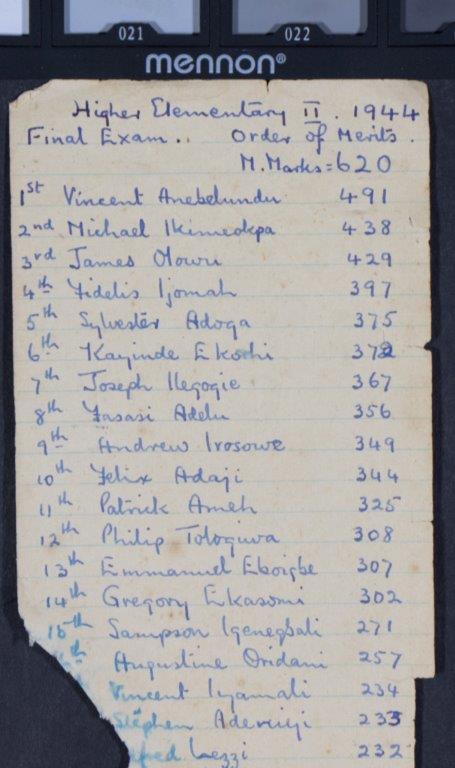 021 022
mennon®
Higher Elementary II. 1944
Final Exam.. Order of Merits.
M. Marks = 620
1st Vincent Anebelundu 491
2nd Michael Ikimeokpa 438
3rd James Olowu 429
4th Fidelis Ijomah 397
5th Sylvester Adoga 375
6th Kayinde Ekochi 372
7th Joseph Ilegogie 367
8th Fasasi Adelu 356
9th Andrew Irosowe 349
10th Felix Adaji 344
11th Patrick Ameh 325
12th Philip Tologuwa 308
13th Emmanuel Eboigbe 307
14th Gregory Ekasomi 302
15th Sampson Igenegbali 271
th Augustine Oridami 257
Vincent Iyamali 234
Stephen 233
Lezzi 232